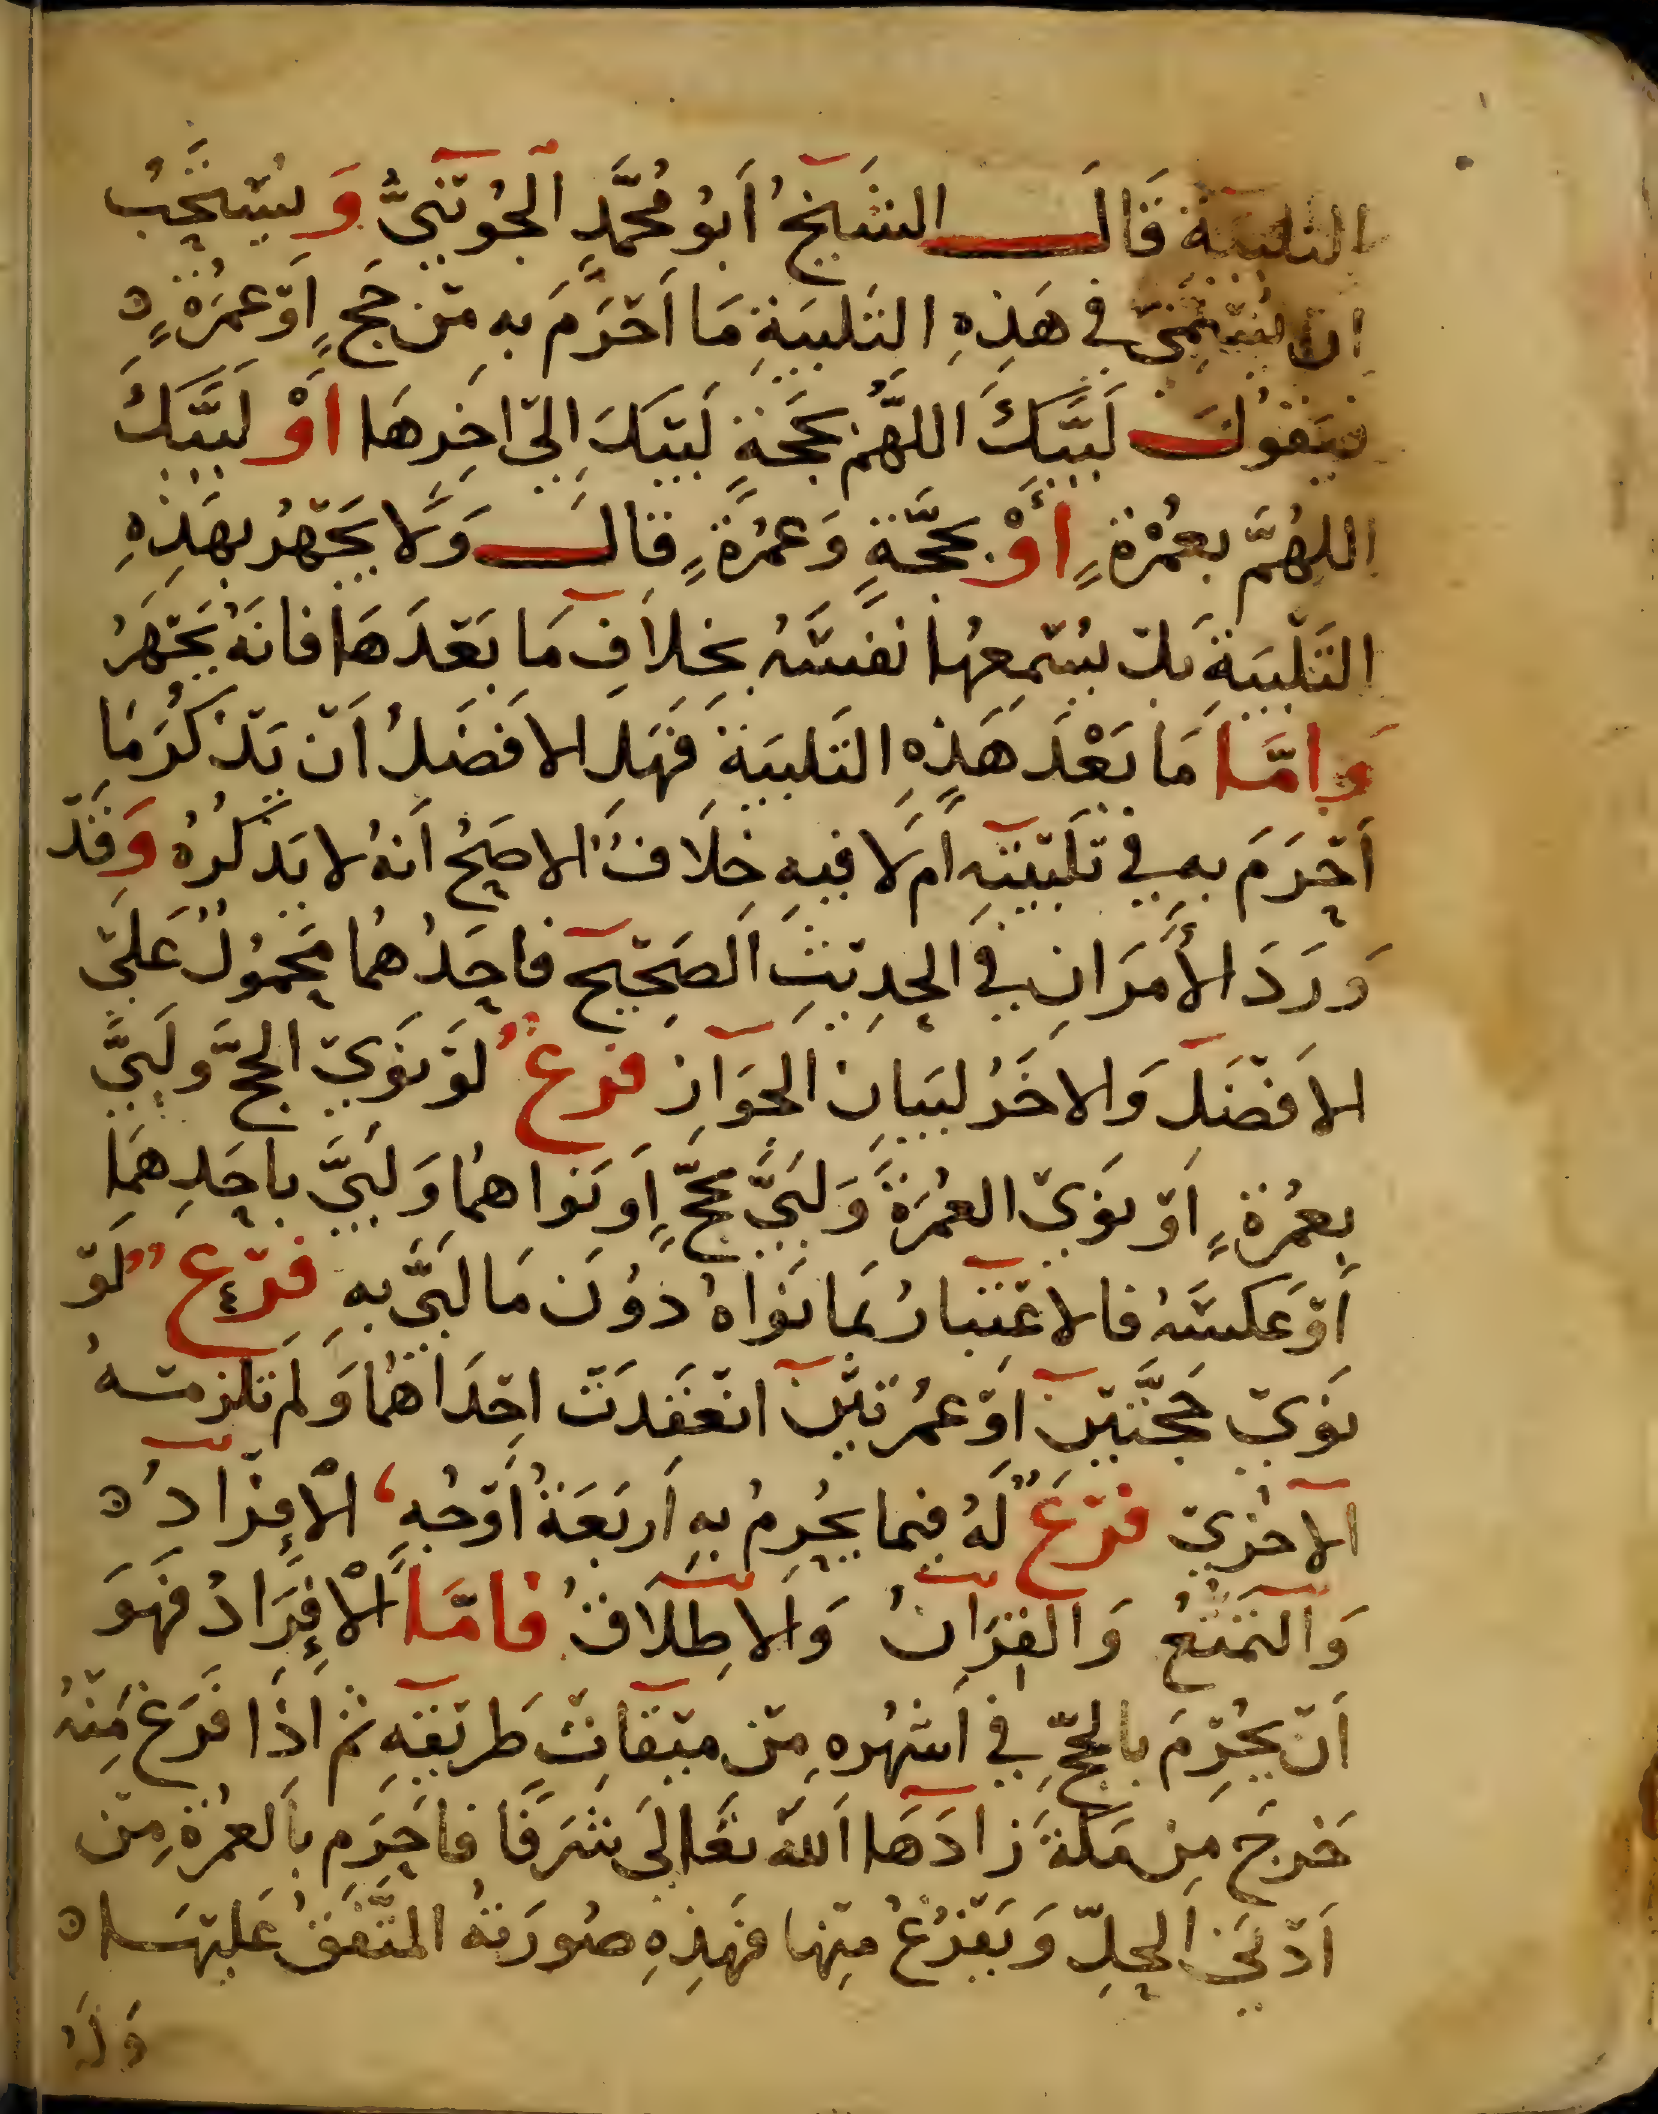 التلبية قَالَ الشَيخُ أبُو مُحمَّدٍ الجُوَيْنيُّ وَيُسْتَحَبُّ
ان يُسَمِّيَ في هَذِهِ التَلبيَةِ مَا اَحْرَمَ بهِ مِنْ حَجٍّ اَوْ عمْرَةٍ
فيَقوُلَ لَبَّيْكَ اللهُمَّ بحَجَةٍ لَبَيكَ اِلىَ اخِرِهَا اَوْ لَبَّيْكَ
اللهُمَّ بعُمْرَةٍ أوْ بحَجَّةٍ وَعمُرَةٍ قالَ وَلَا يَجْهَرُ بهَذِهِ
التَلْبيَةِ بَلْ يُسْمِعُهَا نفسَهُ بخِلَافِ مَا بَعْدَهَا فانَهُ يَجْهَرُ
وَامَّا مَا بَعْدَ هَذِهِ التَلبيَة فَهَل الافضَلُ اَنْ يَذكُرَ مَا
اَحْرَمَ بهِ في تَلْبيَتهِ اَم لَا فيهِ خِلَافٌ الاصَحُ اَنهُ لا يَذكُرُهُ وَقَدْ
وَرَدَ الأمْرَانِ في الحَدِيْثِ الصَحِيْح فاحَدُهُمَا مَحمُوُلٌ عَلىَ
الاَفْضَلَ وَالاخَرُ لبَيَانِ الجَوَازِ فرعٌ لَوْ نَوَىْ الحَجَّ وَلَبىَّ
بعمُرَةٍ اَوْ نوَىْ العُمْرَةَ وَلَبىَّ بحَجٍّ اَو نَواهُمَا وَلَبىَّ باحَدِهمَا
اَوْ عَكسَهُ فالاعْتبَارُ بمَا نَوَاهُ دوُنَ مَا لَبىَّ بهِ فرْعٌ لَوْ
نَوىَْ حَجَّتَيْنِ اَوْ عمُرتَيْنِ انْعَقدَتْ احْدَاهُمَا وَلَم تَلزمْهُ
الاخْرىَْ فرْعٌ لَهُ فيما يحُرِمُ بهِ اَربَعَةُ اَوْجُهٍ الْاِفْرَادُ
وَالتَمَتعُ وَالقِرَانُ وَالاطْلَاقُ فامَّا الْاِفْرَادُ فَهَوَ
اَنْ يحُرِمَ بالحَجِّ في اَشْهُرهِ مِنْ مِيْقَاتِ طَريْقهِ ثُم اَذَا فَرَغَ مِنْهُ
خَرجَ مِن مَكةَ زادَهَا اللهُ تعَالىَ شَرَفًا فاحَرَم باَلعمُرَةِ مِنْ
اَدْنَى الحِلِّ وَيَفْرُغُ مِنْهَا فهَذِهِ صُورَتهُ المتَّفَقُ عَليْهَا
وَلَهُ